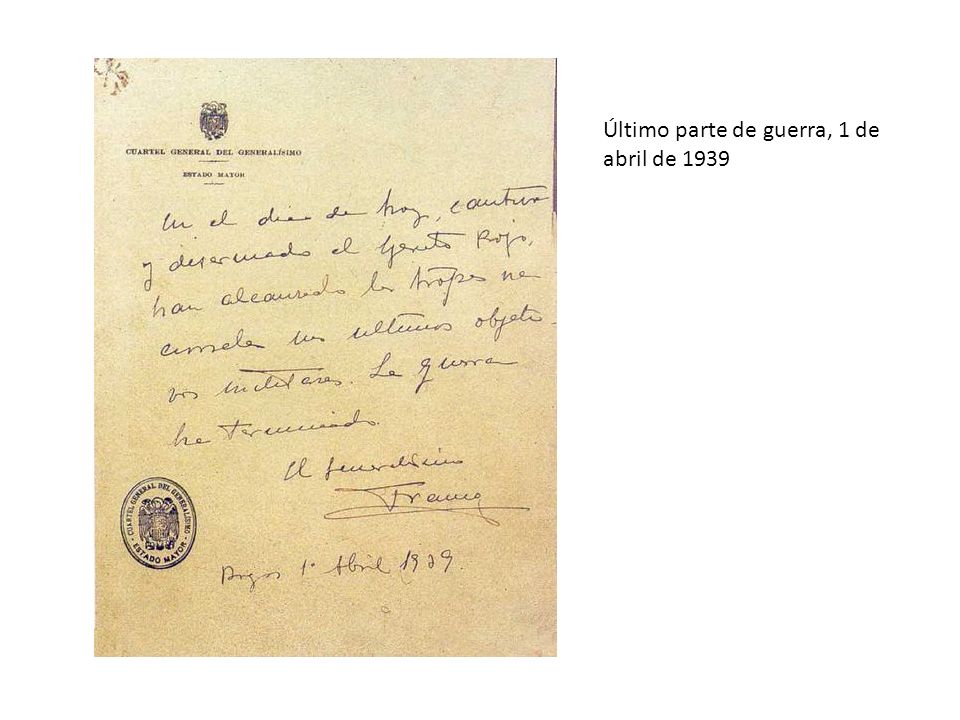 CUARTEL GENERAL DEL GENERALÍSIMO
ESTADO MAYOR
En el dia de hoy, cautivo
y desarmado el Ejercito Rojo,
han alcanzado las tropas na
cionales sus ultimos objeti-
vos militares. La guerra
ha terminado.
El Generalisimo
Franco
Burgos 1º Abril 1939.
CUARTEL GENERAL DEL GENERALÍSIMO
ESTADO MAYOR
Último parte de guerra, 1 de
abril de 1939